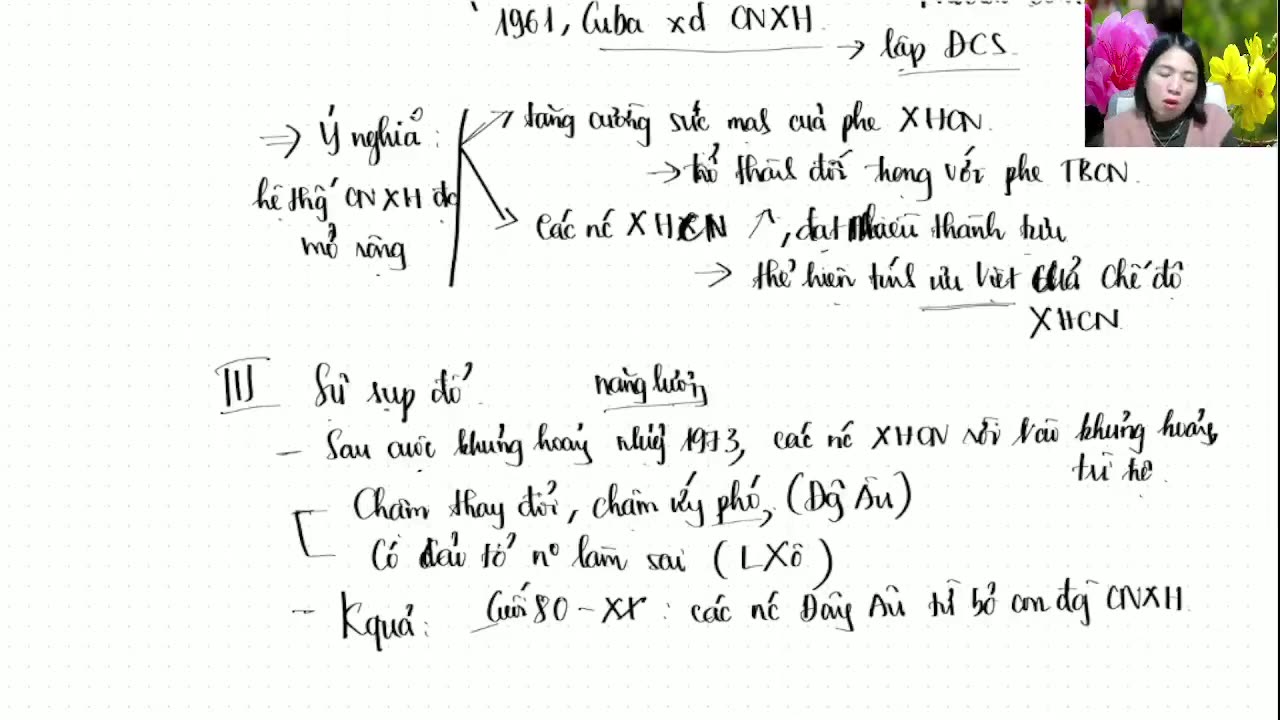 1961, Cuba xd CNXH → lập ĐCS
→ Ý nghĩa:
hệ thg CNXH đc
mở rộng
tăng cường sức mạh của phe XHCN.
→ trở thàh đối trọng với phe TBCN.
các nc XHCN ↗, đạt nhiều thành tựu
→ thể hiện tính ưu việt của chế độ
XHCN.
III Sự sụp đổ
năng lượng
- Sau cuộc khủng hoảng 1973, các nc XHCN rơi vào khủng hoảng,
trì trệ.
Chậm thay đổi, chậm ứng phó, (Đg Âu)
Có cải tổ nº làm sai (LXô)
- Kquả: Cuối 80 - XX: các nc Đông Âu từ bỏ con đg CNXH